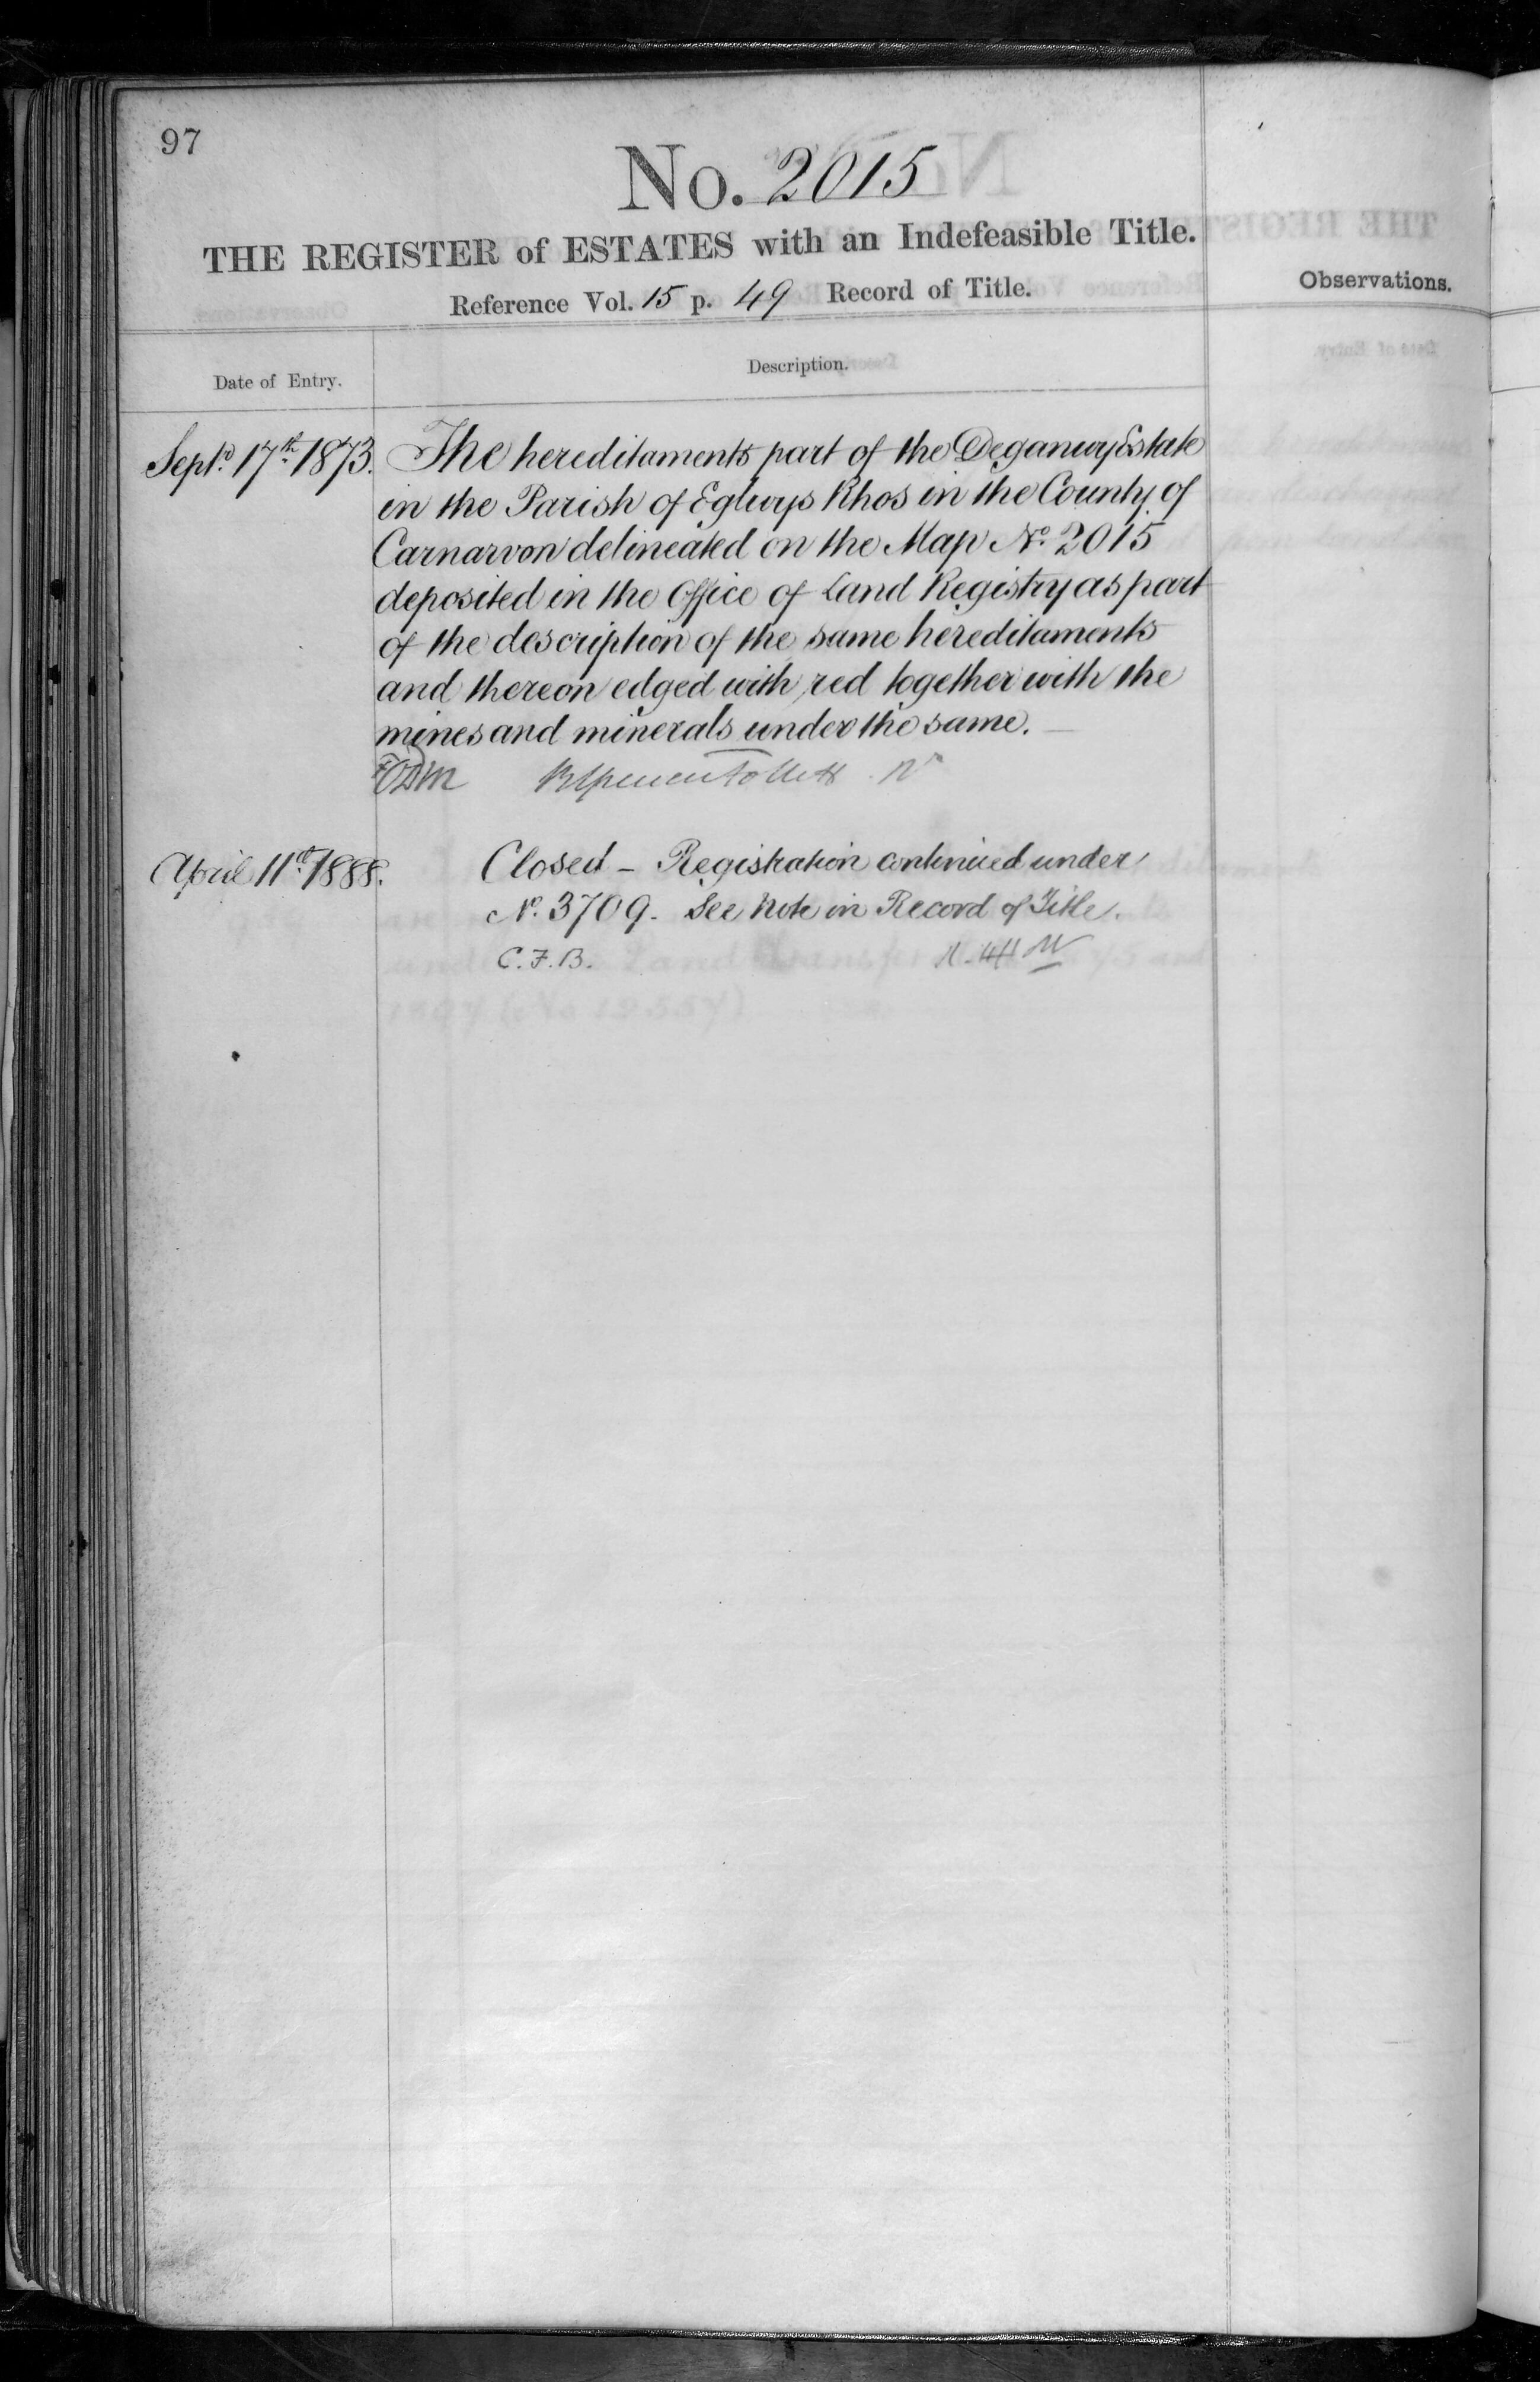 97
No. 2015
THE REGISTER of ESTATES with an Indefeasible Title.
Reference Vol. 15 p. 49 Record of Title.
Observations.
Date of Entry.
Description.
Sept. 17th 1873. The hereditaments part of the Deganwy Estate
in the Parish of Eglwys Rhos in the County of
Carnarvon delineated on the Map No. 2015
deposited in the Office of Land Registry as part
of the description of the same hereditaments
and thereon edged with red together with the
mines and minerals under the same.
April 11th 1888. Closed - Registration continued under
No. 3709. See Note in Record of Title.
C.F.B.